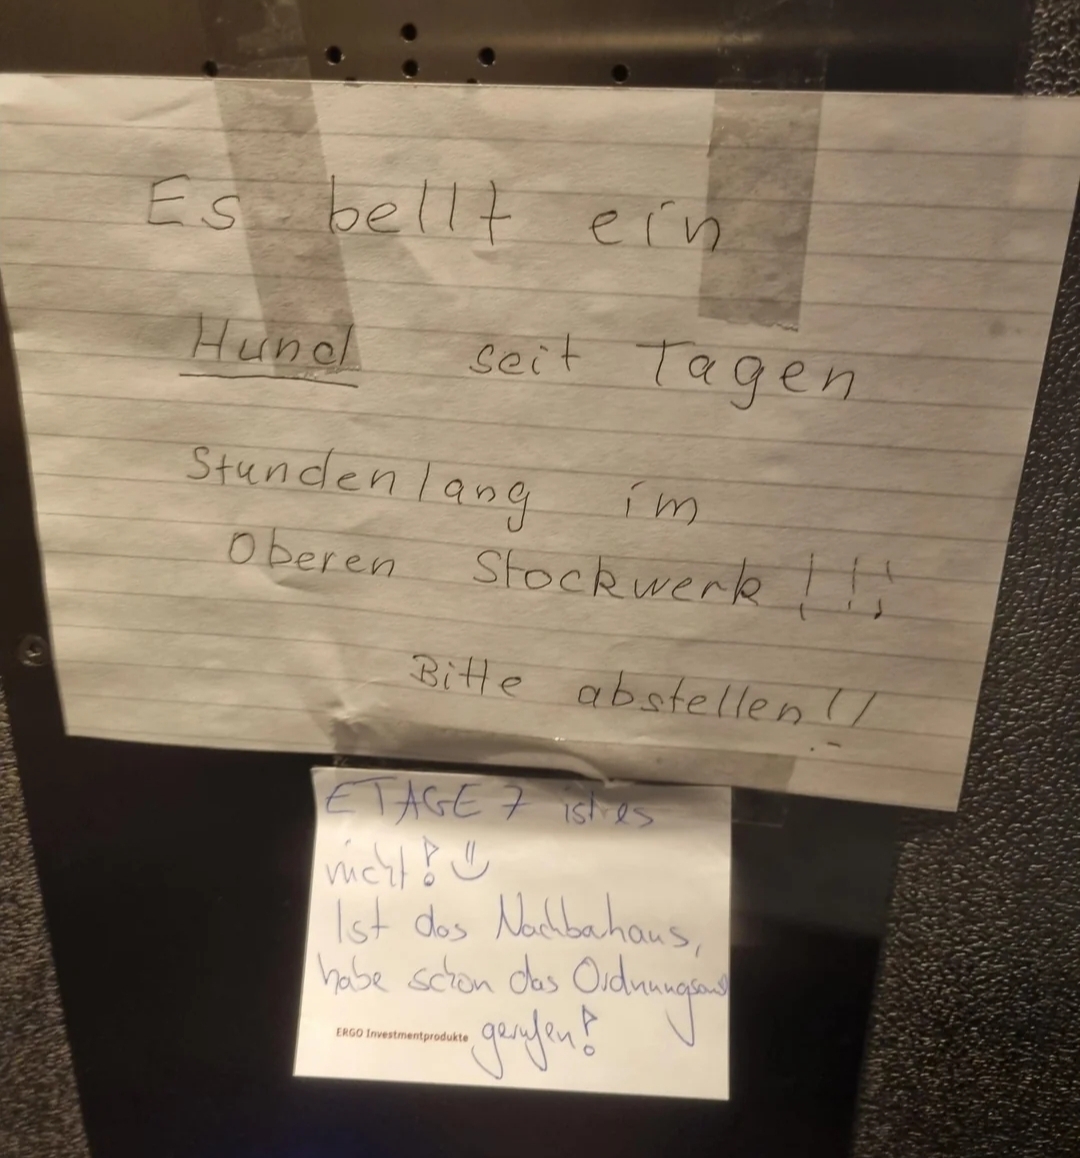 Es bellt ein
Hund seit Tagen
Stundenlang im
Oberen Stockwerk!!!
Bitte abstellen!!
ETAGE 7 ist es
nicht! :)
Ist das Nachbahaus,
habe schon das Ordnungsamt
gerufen!
ERGO Investmentprodukte